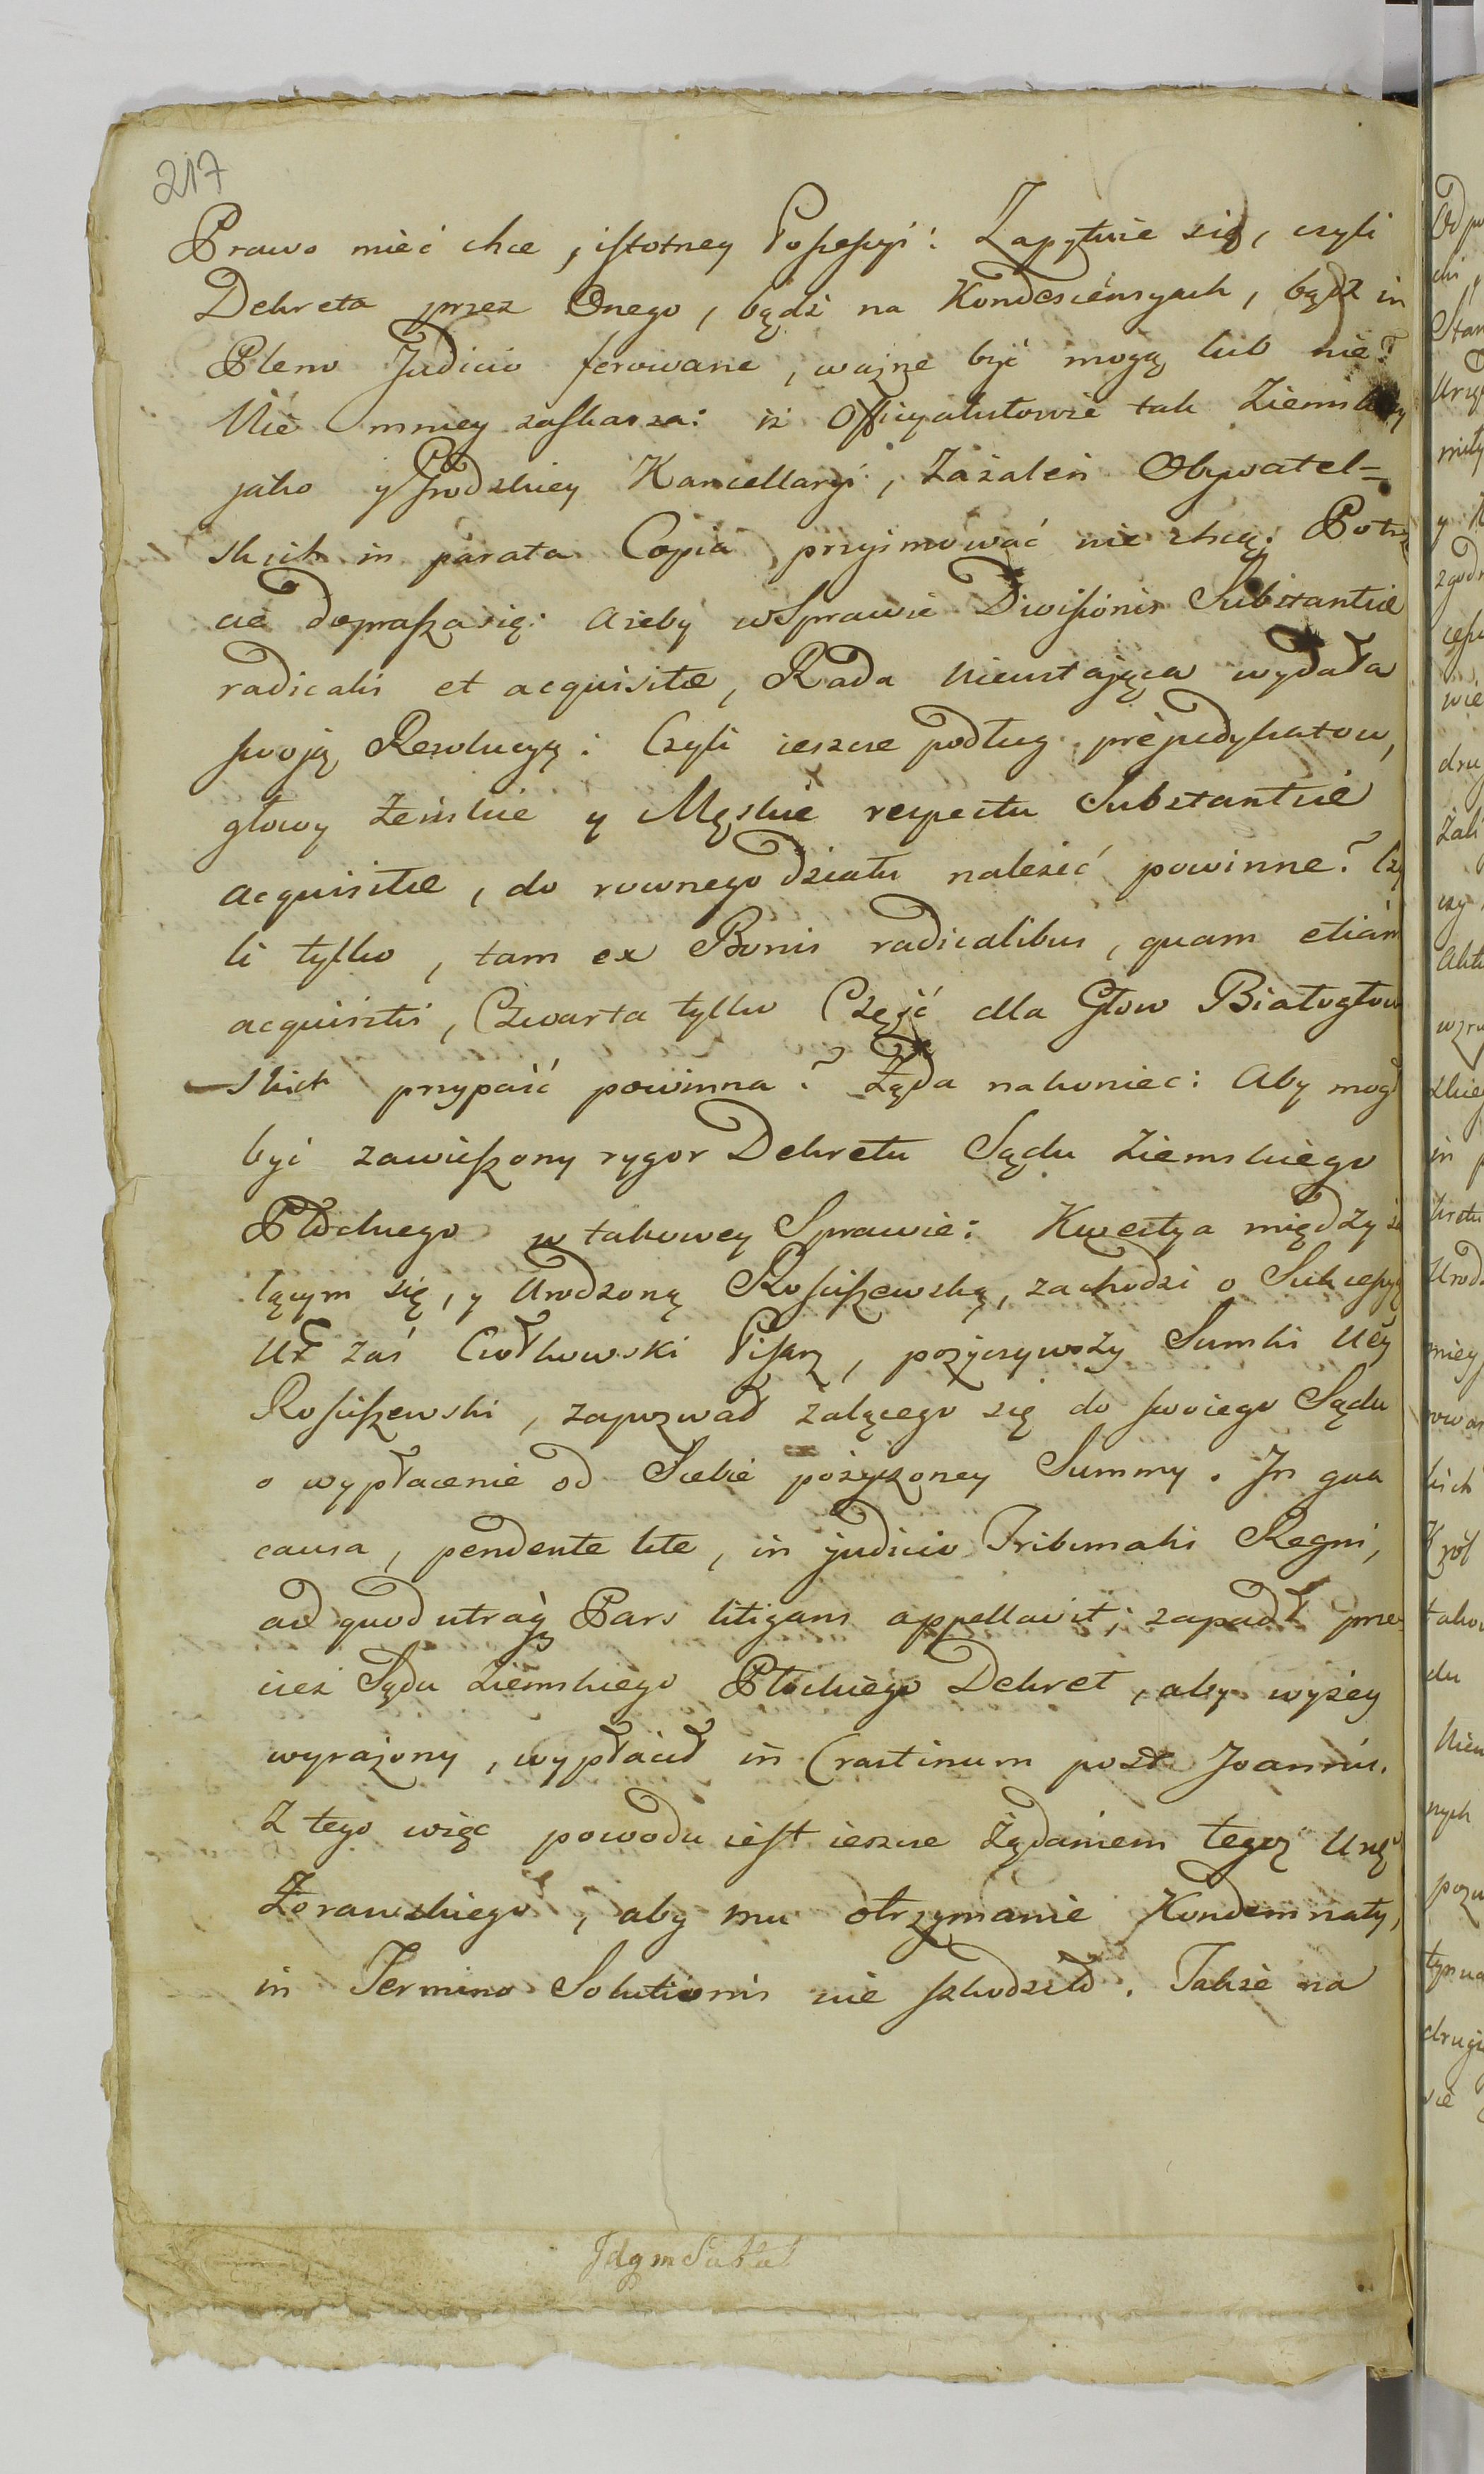 217
Prawo mieć chce, istotney Possessyi: Zapytuie się, czyli
Dekreta przez Onego, bądź na Kondescensyach, bądź in
Pleno Judicio ferowane, ważne być mogą lub nie?
Nie mniey zaskarza: iż Officyalistowie tak Ziemskiey
jako y Grodzkiey Kancellaryi, Zażaleń Obywatel-
skich in parata Copia przyimować nie chcą: Potrze
cie dopraszasię: ażeby w Sprawie Divisionis Substantiæ
radicalis et acquisitæ, Rada Nieustająca wydała
swoją Rezolucyą: Czyli ieszcze podług prejudykatow,
głowy Żeńskie y Męskie respectu Substantiæ
acquisitæ, do rownego działu należeć powinne? Czy
li tylko, tam ex Bonis radicalibus, quam etiam
acquisitis, Czwarta tylko Część dla Głow Białogłow
skich przypaść powinna? Żąda nakoniec: Aby mogł
być zawieszony rygor Dekretu Sądu Ziemskiego
Płockiego w takowey Sprawie: Kwestya między ża
lącym się, y Urodzoną Rosciszewską, zachodzi o Sukcessyą
Ur zaś Ciołkowski Pisarz, pożyczywszy Sumki Uey
Rosciszewski, zapozwał żalącego się do swoiego Sądu
o wypłacenie od Siebie pożyczoney Summy. In qua
causa, pendente lite, in judicio Tribunalis Regni,
ad quod utraq Pars litigans appellavit; zapadł prze
cież Sądu Ziemskiego Płockiego Dekret, aby wyżey
wyrażony, wypłacił in Crastinum post Joannis.
Z tego więc powodu iest ieszcze Żądaniem tegoż Urgo
Żorawskiego, aby mu otrzymanie Kondemnaty,
in Termino Solutionis nie szkodziło. Także na